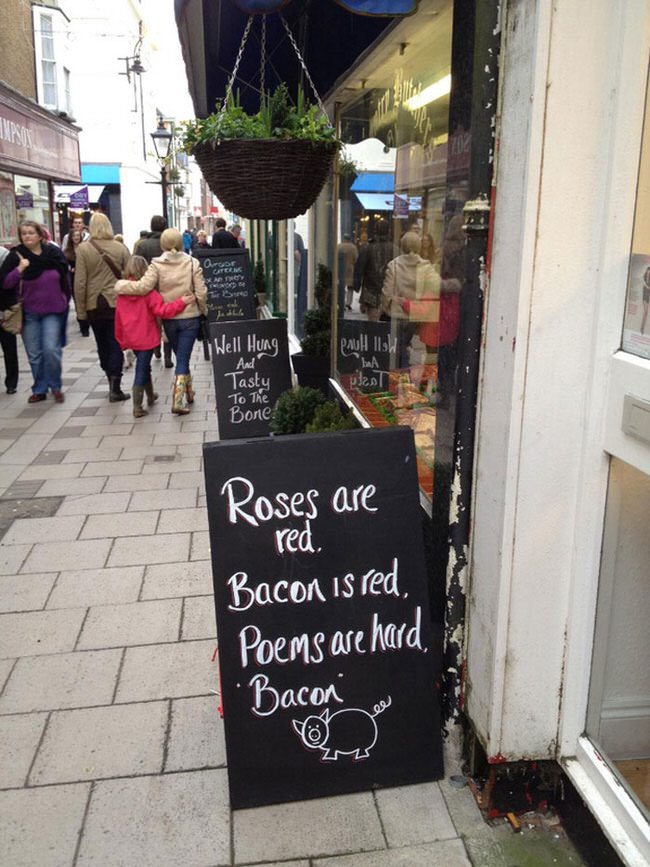 Roses are
red.
Bacon is red.
Poems are hard.
"Bacon"
Well Hung
And
Tasty
To The
Bone
Outside